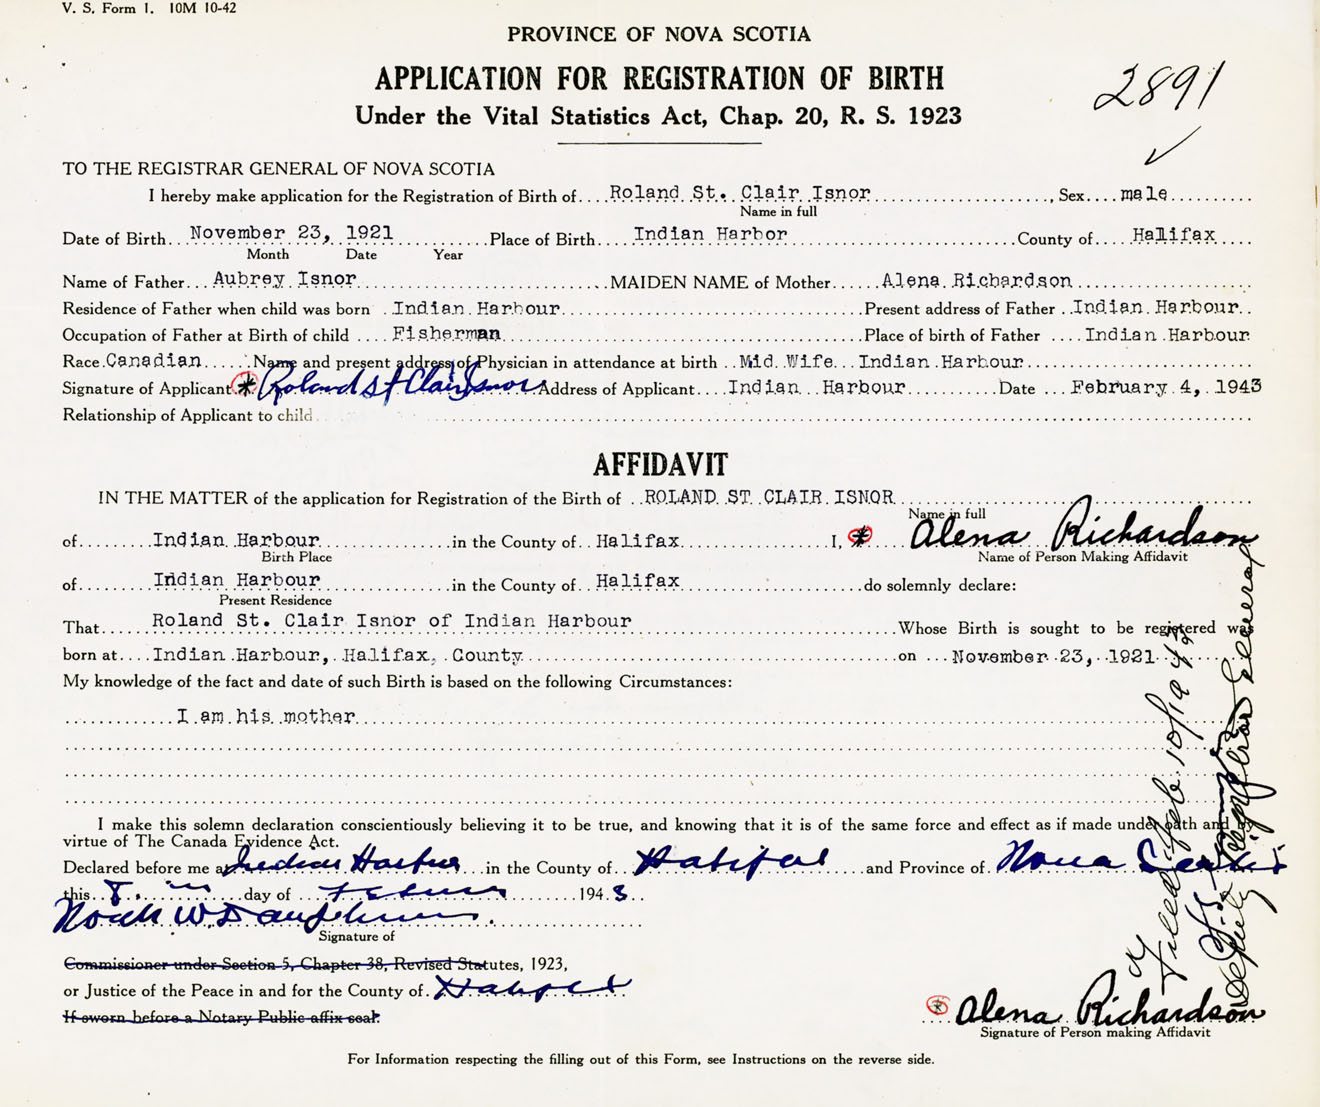 V. S. Form 1. 10M 10-42
PROVINCE OF NOVA SCOTIA
APPLICATION FOR REGISTRATION OF BIRTH
2891
Under the Vital Statistics Act, Chap. 20, R. S. 1923
TO THE REGISTRAR GENERAL OF NOVA SCOTIA
I hereby make application for the Registration of Birth of Roland St. Clair Isnor, Sex male
Name in full
Date of Birth November 23, 1921 Place of Birth Indian Harbor County of Halifax
Month Date Year
Name of Father Aubrey Isnor MAIDEN NAME of Mother Alena Richardson
Residence of Father when child was born Indian Harbour Present address of Father Indian Harbour
Occupation of Father at Birth of child Fisherman Place of birth of Father Indian Harbour
Race Canadian Name and present address of Physician in attendance at birth Mid Wife Indian Harbour
Signature of Applicant * Roland St Clair Isnor Address of Applicant Indian Harbour Date February 4, 1943
Relationship of Applicant to child
AFFIDAVIT
IN THE MATTER of the application for Registration of the Birth of ROLAND ST CLAIR ISNOR
Name in full
of Indian Harbour in the County of Halifax I, * Alena Richardson
Birth Place Name of Person Making Affidavit
of Indian Harbour in the County of Halifax do solemnly declare:
Present Residence
That Roland St. Clair Isnor of Indian Harbour Whose Birth is sought to be registered was
born at Indian Harbour, Halifax, County on November 23, 1921
My knowledge of the fact and date of such Birth is based on the following Circumstances:
I am his mother
I make this solemn declaration conscientiously believing it to be true, and knowing that it is of the same force and effect as if made under oath and by
virtue of The Canada Evidence Act.
Declared before me at Indian Harbour in the County of Halifax and Province of Nova Scotia
this 8 day of February 1943
Signature of
Commissioner under Section 5, Chapter 38, Revised Statutes, 1923,
or Justice of the Peace in and for the County of Halifax
If sworn before a Notary Public affix seal.
* Alena Richardson
Signature of Person making Affidavit
For Information respecting the filling out of this Form, see Instructions on the reverse side.
Filed Feb. 10/1943
Deputy Registrar General